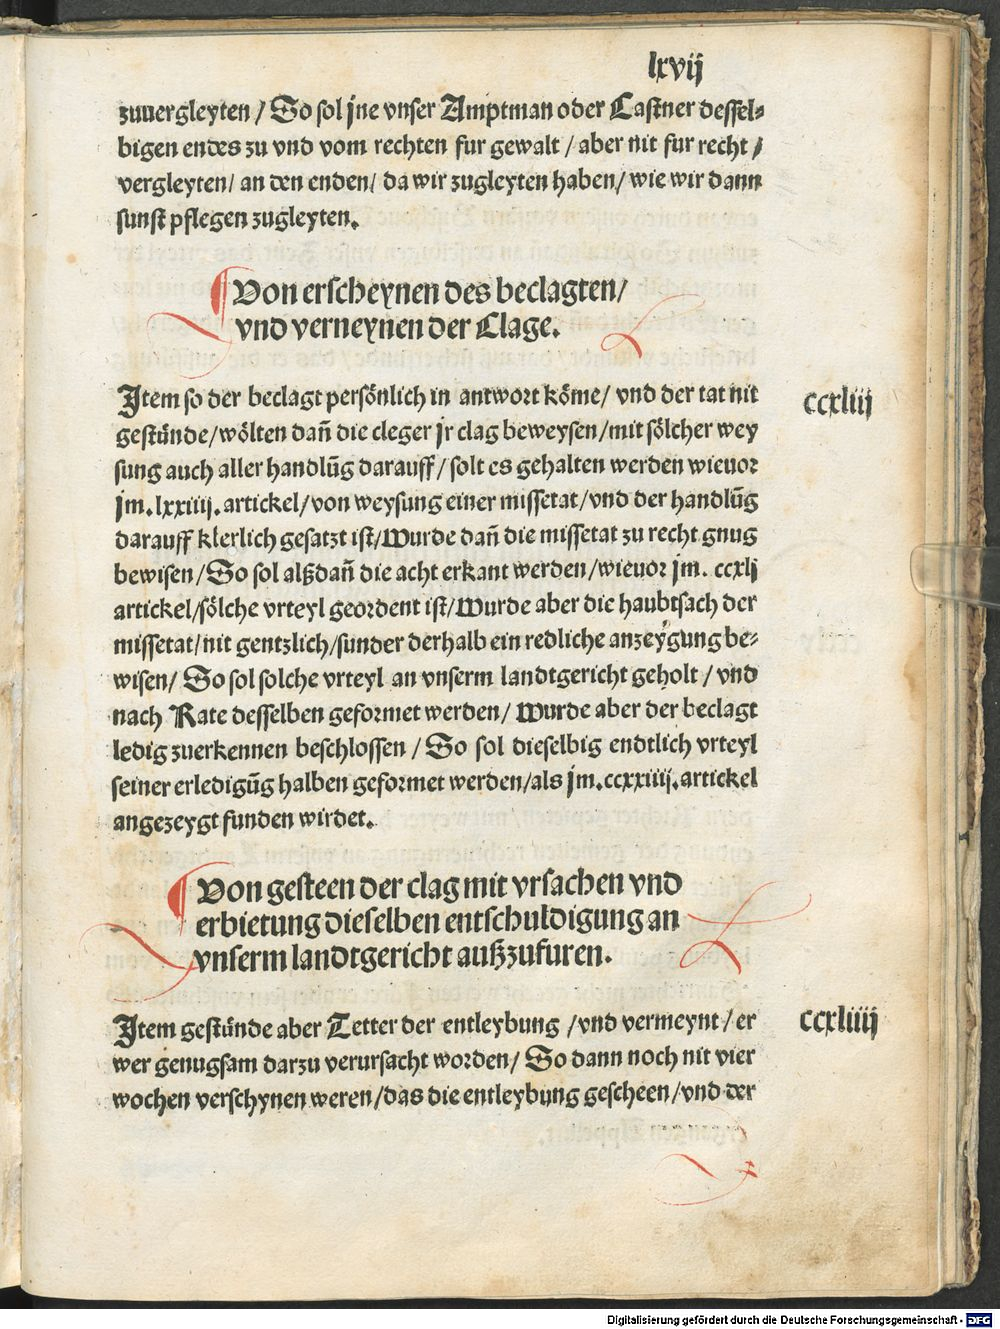 lxvij
zuuergleyten / So sol jne vnser Amptman oder Castner dessel⸗
bigen endes zu vnd vom rechten fur gewalt / aber nit fur recht /
vergleyten / an den enden / da wir zugleyten haben / wie wir dann
sunst pflegen zugleyten.
Von erscheynen des beclagten /
vnd verneynen der Clage.
Item so der beclagt persönlich in antwort köme / vnd der tat nit
ccxliij
gestünde / wölten dañ die cleger jr clag beweysen / mit sölcher wey
sung auch aller handlūg darauff / solt es gehalten werden wieuor
jm. lxxiiij. artickel / von weysung einer missetat / vnd der handlūg
darauff klerlich gesatzt ist / Wurde dañ die missetat zu recht gnug
bewisen / So sol alßdañ die acht erkant werden / wieuor jm. ccxlj
artickel / sölche vrteyl geordent ist / Wurde aber die haubtsach der
missetat / nit gentzlich / sunder derhalb ein redliche anzeygung be⸗
wisen / So sol solche vrteyl an vnserm landtgericht geholt / vnd
nach Rate desselben geformet werden / Wurde aber der beclagt
ledig zuerkennen beschlossen / So sol dieselbig endtlich vrteyl
seiner erledigūg halben geformet werden / als jm. ccxxiiij. artickel
angezeygt funden wirdet.
Von gesteen der clag mit vrsachen vnd
erbietung dieselben entschuldigung an
vnserm landtgericht außzufuren.
Item gestünde aber Tetter der entleybung / vnd vermeynt / er
ccxliiij
wer genugsam darzu verursacht worden / So dann noch nit vier
wochen verschynen weren / das die entleybung gescheen / vnd der
Digitalisierung gefördert durch die Deutsche Forschungsgemeinschaft - DFG